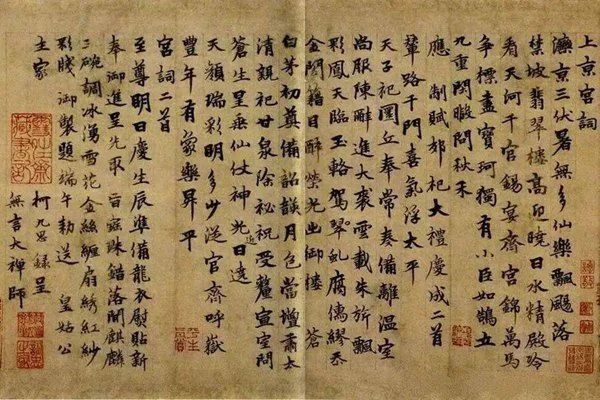 上京宮詞
灤京三伏暑無多仙樂飄飄落
禁坡翡翠樓高迎曉日水精殿冷
看天河千官錫宴齊宮錦萬馬
爭標盡寶珂獨有小臣如鵠立
九重閒暇問秋禾
應制賦郊祀大禮慶成二首
輦路千門喜氣浮太平
天子祀圜丘奉常奏備離溫室
尚服陳辭進大裘雲載朱旂飄
彩鳳天臨玉輅駕翠虬腐儒繆忝
金閨籍目醉榮光出御樓 蒼
白茅初奠備韶頀月色當壇肅太
清親祀甘泉除祕祝受釐宣室問
蒼生星垂仙仗神光近日遶
天顏瑞彩明多少從官齊呼嶽
豐年有象樂昇平
宮詞二首
至尊明日慶生辰準備龍衣熨貼新
奉御進呈先取 旨寇珠錯落閒麒麟
三碗調冰湧雪花金絲纏扇綉紅紗
彩牋御製題端午勅送 皇姑公
主家
柯九思錄呈
無言大禪師